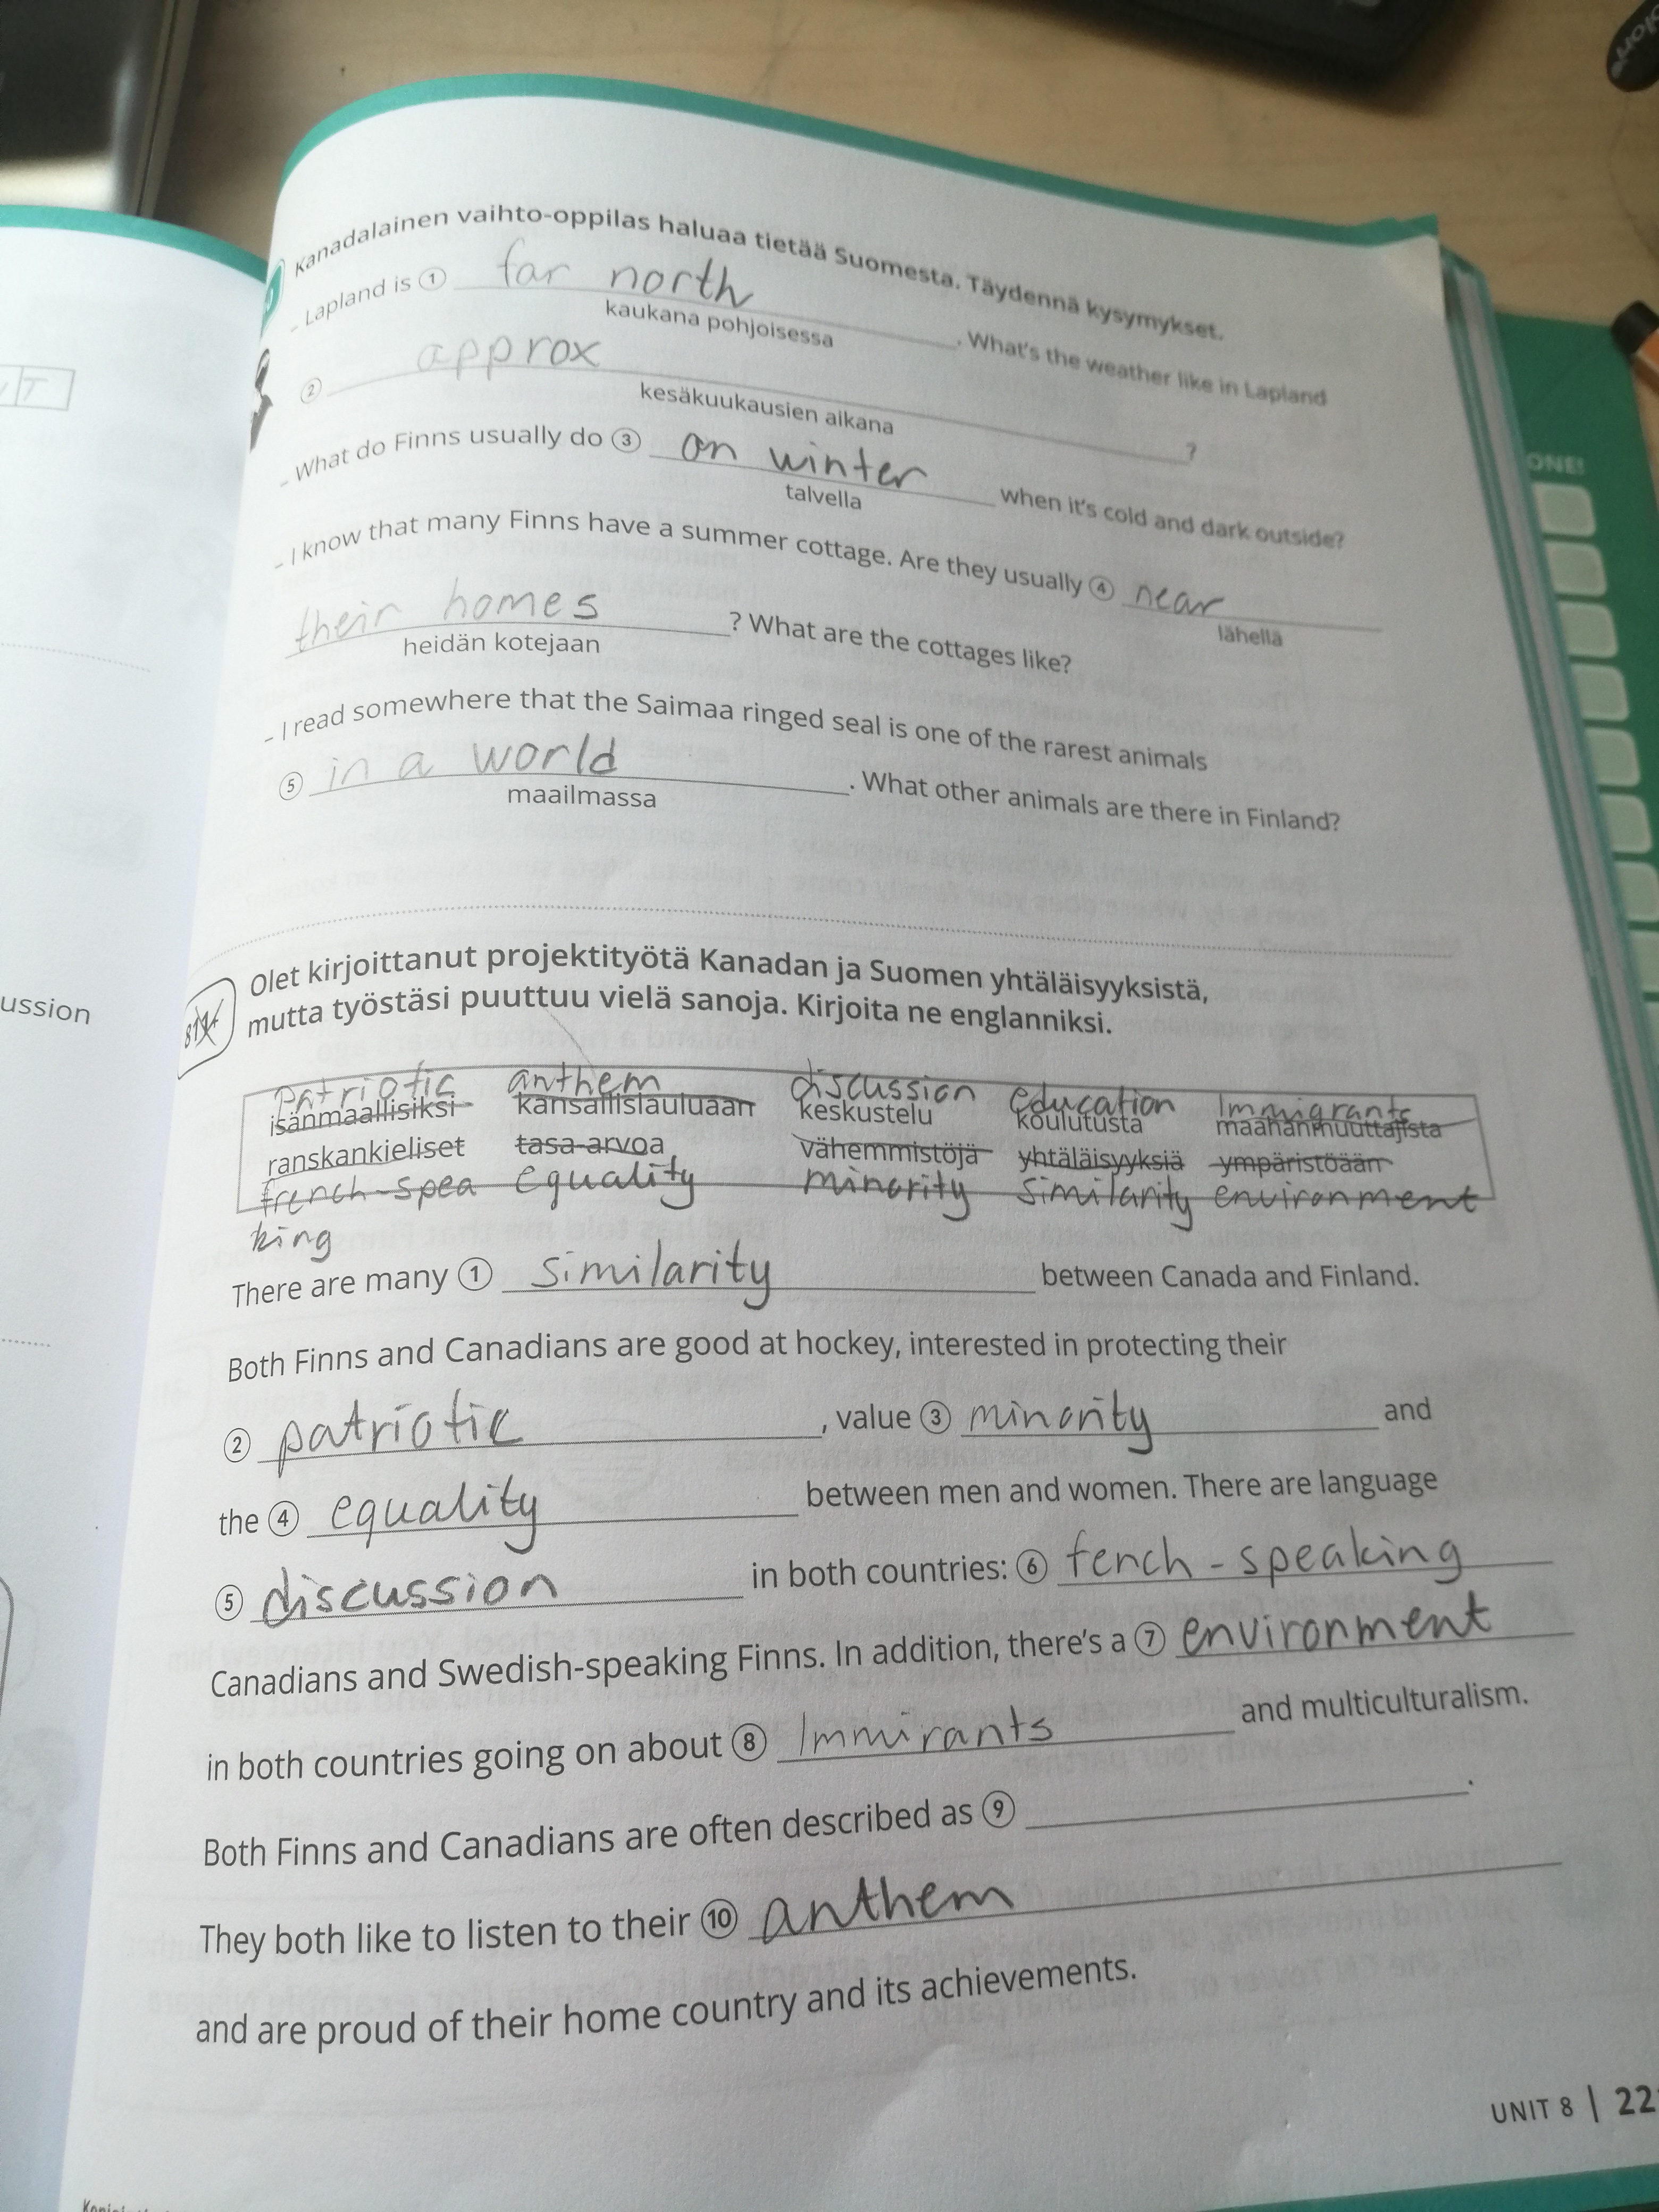 Kanadalainen vaihto-oppilas haluaa tietää Suomesta. Täydennä kysymykset.
– Lapland is ① far north . What's the weather like in Lapland
kaukana pohjoisessa
② approx ?
kesäkuukausien aikana
– What do Finns usually do ③ on winter when it's cold and dark outside?
talvella
– I know that many Finns have a summer cottage. Are they usually ④ near
lähellä
their homes ? What are the cottages like?
heidän kotejaan
– I read somewhere that the Saimaa ringed seal is one of the rarest animals
⑤ in a world . What other animals are there in Finland?
maailmassa
ussion
ONE!
Olet kirjoittanut projektityötä Kanadan ja Suomen yhtäläisyyksistä,
mutta työstäsi puuttuu vielä sanoja. Kirjoita ne englanniksi.
patriotic anthem discussion education Immigrants
isänmaallisiksi kansallislauluaan keskustelu koulutusta maahanmuuttajista
ranskankieliset tasa-arvoa vähemmistöjä yhtäläisyyksiä ympäristöään
french-spea equality minority similarity environment
king
There are many ① similarity between Canada and Finland.
Both Finns and Canadians are good at hockey, interested in protecting their
② patriotic , value ③ minority and
the ④ equality between men and women. There are language
⑤ discussion in both countries: ⑥ fench-speaking
Canadians and Swedish-speaking Finns. In addition, there's a ⑦ environment
in both countries going on about ⑧ Immirants and multiculturalism.
Both Finns and Canadians are often described as ⑨ .
They both like to listen to their ⑩ anthem
and are proud of their home country and its achievements.
UNIT 8 | 22